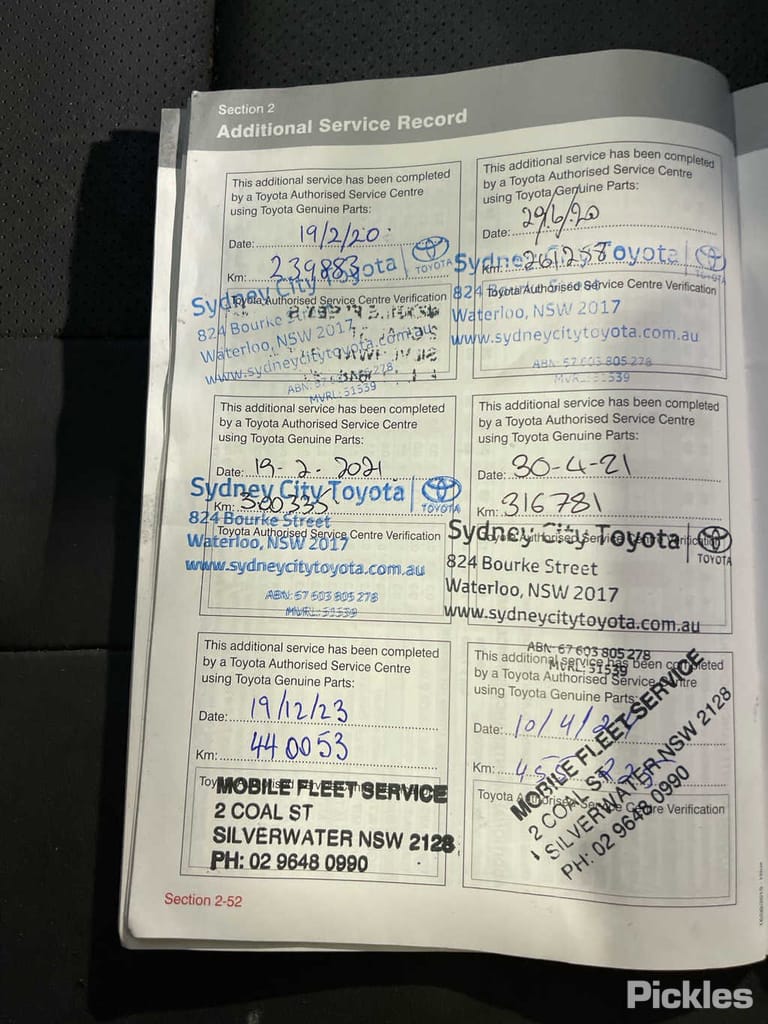 Section 2
Additional Service Record
This additional service has been completed
by a Toyota Authorised Service Centre
using Toyota Genuine Parts:
Date: 19/2/20
Km: 239883
Toyota Authorised Service Centre Verification
Sydney City Toyota
TOYOTA
824 Bourke Street
Waterloo, NSW 2017
www.sydneycitytoyota.com.au
ABN: 57 603 805 278
MVRL: 51539
This additional service has been completed
by a Toyota Authorised Service Centre
using Toyota Genuine Parts:
Date: 29/6/20
Km: 261258
Sydney City Toyota
TOYOTA
Toyota Authorised Service Centre Verification
824 Bourke Street
Waterloo, NSW 2017
www.sydneycitytoyota.com.au
ABN: 57 603 805 278
MVRL: 51539
This additional service has been completed
by a Toyota Authorised Service Centre
using Toyota Genuine Parts:
Date: 19-2-2021
Km: 300335
Sydney City Toyota
TOYOTA
824 Bourke Street
Toyota Authorised Service Centre Verification
Waterloo, NSW 2017
www.sydneycitytoyota.com.au
ABN: 57 603 805 278
MVRL: 51539
This additional service has been completed
by a Toyota Authorised Service Centre
using Toyota Genuine Parts:
Date: 30-4-21
Km: 316781
Toyota Authorised Service Centre Verification
Sydney City Toyota
TOYOTA
824 Bourke Street
Waterloo, NSW 2017
www.sydneycitytoyota.com.au
ABN: 57 603 805 278
MVRL: 51539
This additional service has been completed
by a Toyota Authorised Service Centre
using Toyota Genuine Parts:
Date: 19/12/23
Km: 440053
Toyota Authorised Service Centre Verification
MOBILE FLEET SERVICE
2 COAL ST
SILVERWATER NSW 2128
PH: 02 9648 0990
This additional service has been completed
by a Toyota Authorised Service Centre
using Toyota Genuine Parts:
Date: 10/4/
Km:
Toyota Authorised Service Centre Verification
MOBILE FLEET SERVICE
2 COAL ST
SILVERWATER NSW 2128
PH: 02 9648 0990
Section 2-52
Pickles